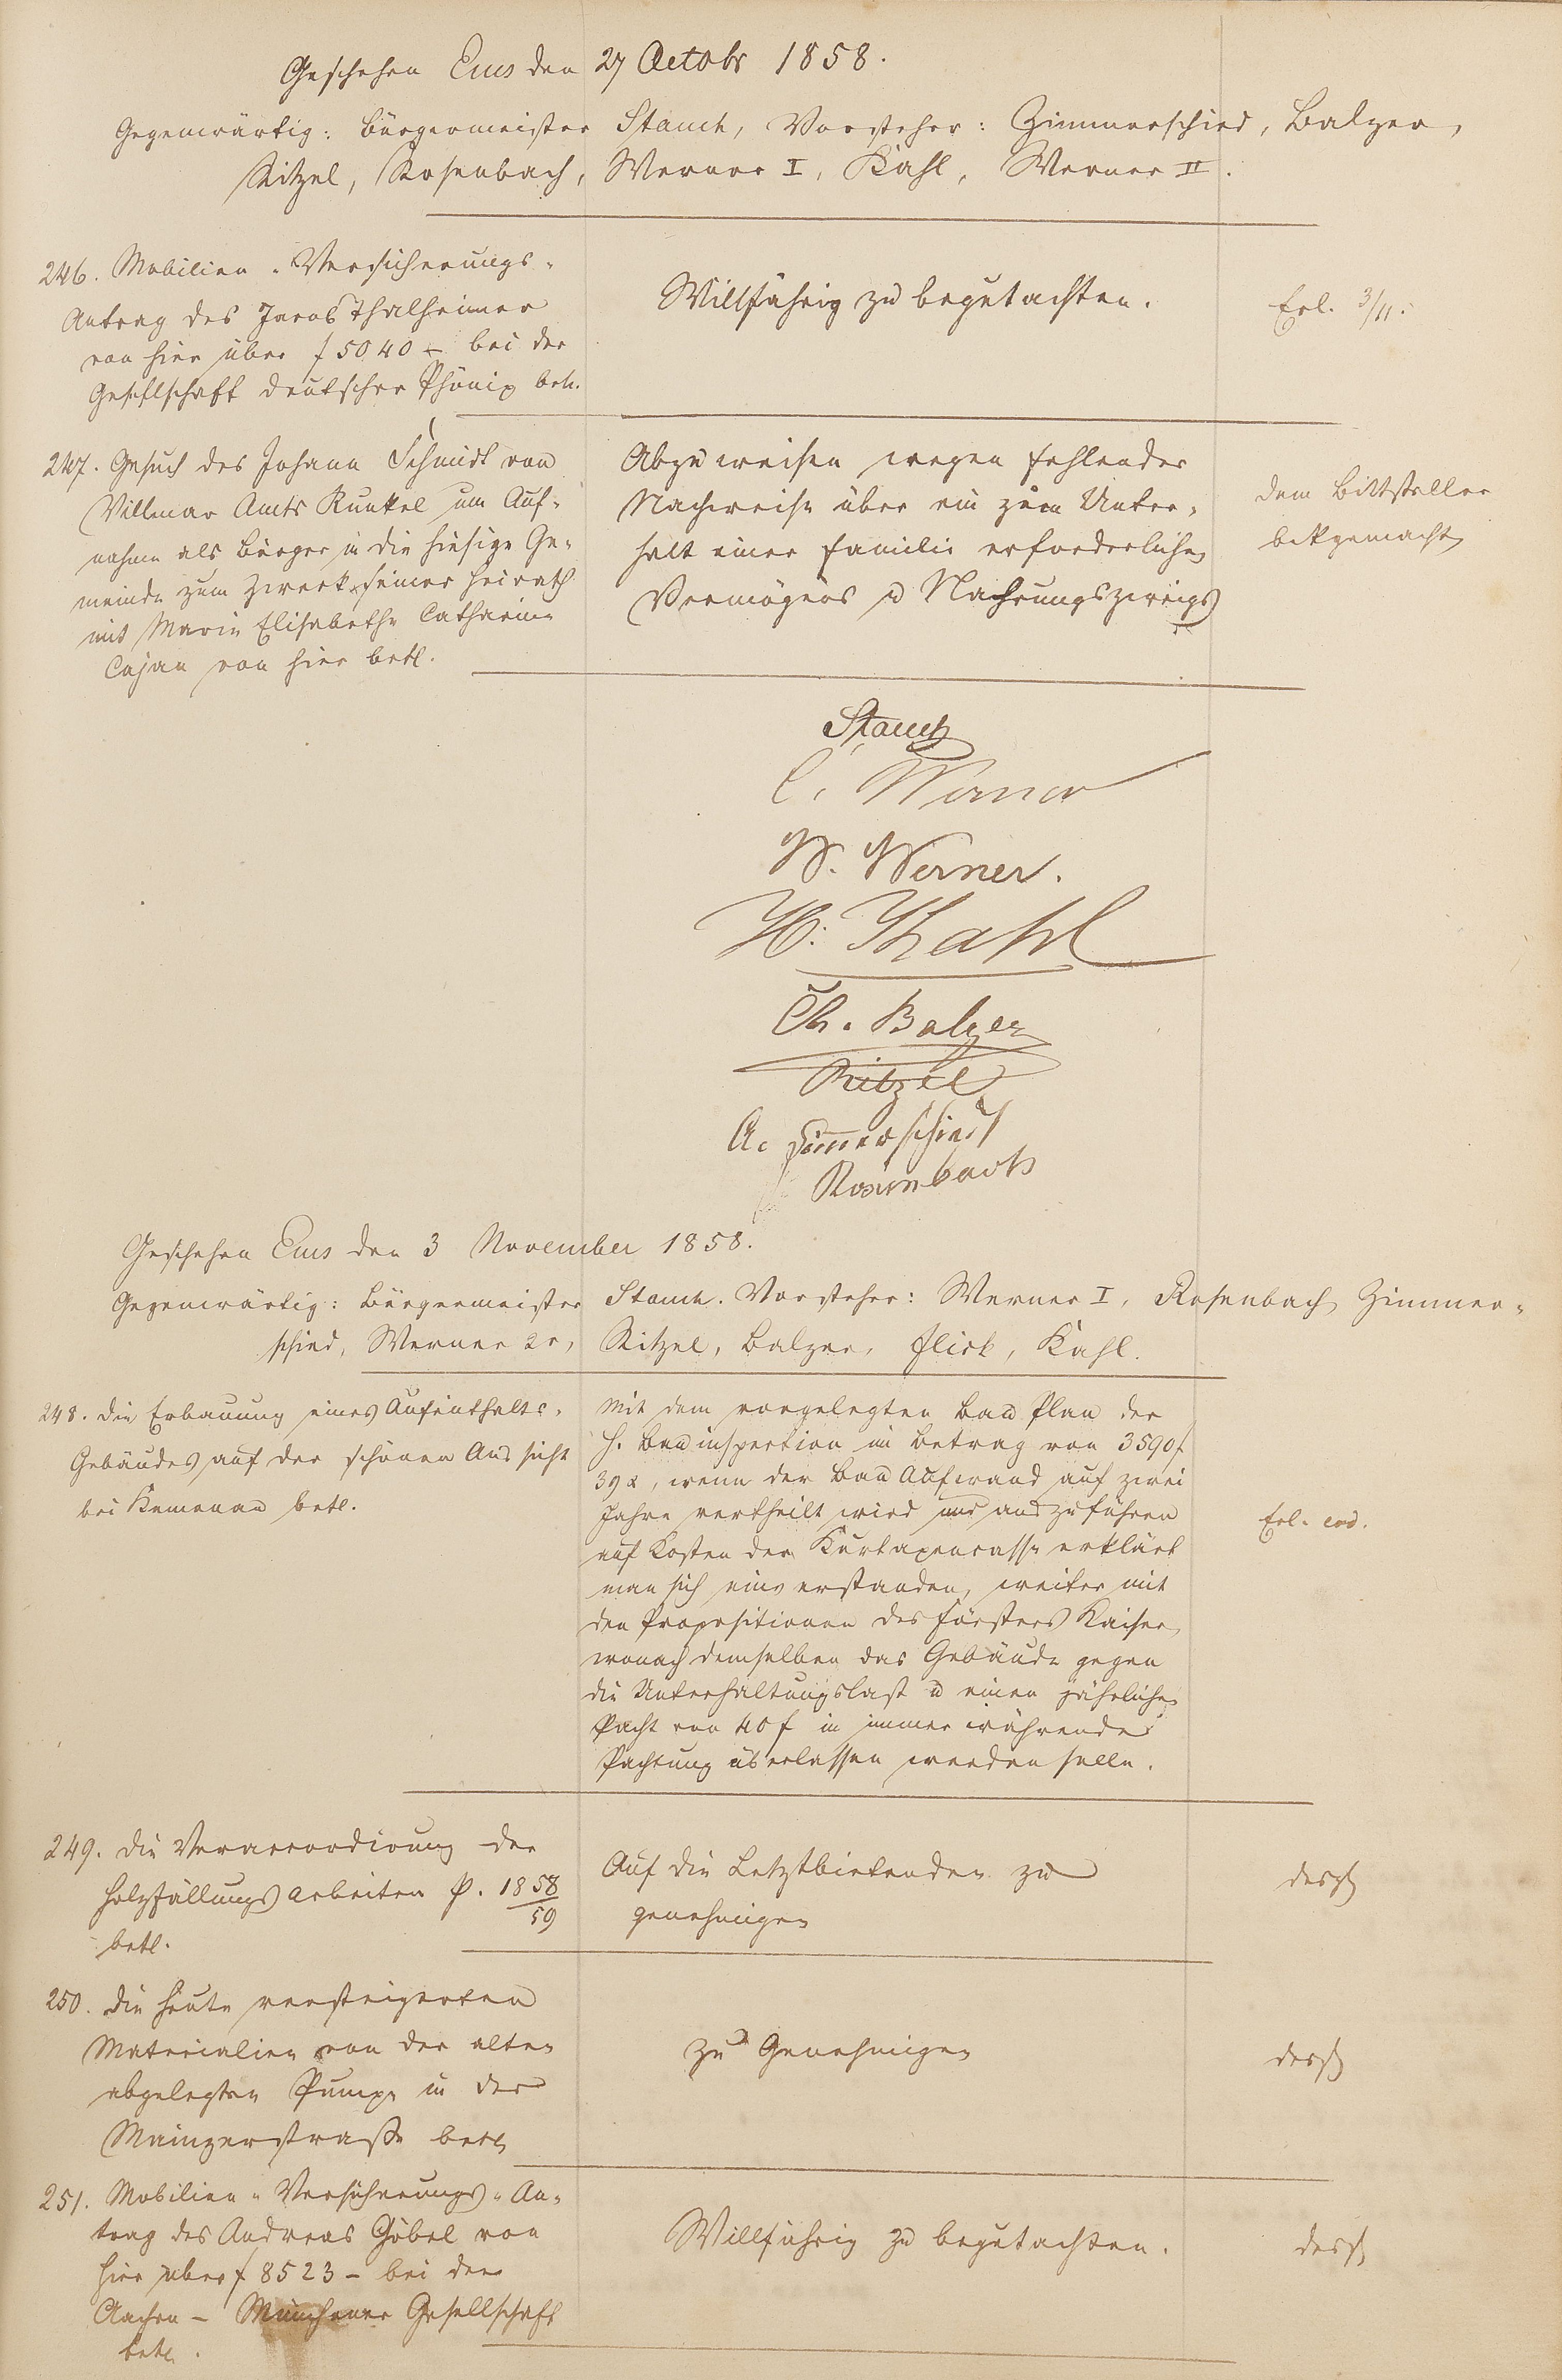 Geschehen Ems den 27 Octobr 1858.
Gegenwärtig: Bürgermeister Stauch, Vorsteher: Zimmerschied, Balzer,
Ritzel, Rosenbach, Werner I, Kahl, Werner II.
246. Mobilien-Versicherungs-
Antrag des Jacob Thalheimer
von hier über f 5040 – bei der
Gesellschaft deutscher Phönix betr.
Willfährig zu begutachten.
Erl. 3/11.
247. Gesuch des Johann Schmidt von
Villmar Amts Runkel um Auf-
nahme als Bürger in die hiesige Ge-
meinde zum Zwecke seiner Heirath
mit Marie Elisabethe Catharine
Cajan von hier betr.
Abzuweisen wegen fehlender
Nachweise über ein zum Unter-
halt einer Familie erforderlichen
Vermögens u Nahrungszweigs
dem Bittsteller
bektgemacht
Stauch
C. Werner
W. Werner.
H: Kahl
Ch. Balzer
Ritzel
A. Zimmerschied
Rosenbach
Geschehen Ems den 3 November 1858.
Gegenwärtig: Bürgermeister Stauch. Vorsteher: Werner I, Rosenbach, Zimmer-
schied, Werner 2r, Ritzel, Balzer, Flick, Kahl.
248. Die Erbauung eines Aufenthalts-
Gebäudes auf der schönen Aussicht
bei Kemenau betr.
Mit dem vorgelegten Bau Plan der
H. Bauinspection im Betrag von 3590 f
39 x, wenn der Bau Aufwand auf zwei
Jahre vertheilt wird und auszuführen
auf Kosten der Kurtaxencasse erklärt
man sich einverstanden, weiter mit
den Propositionen des Försters Kaiser,
wonach demselben das Gebäude gegen
die Unterhaltungslast u einen jährlichen
Pacht von 40 f in immer währender
Pachtung überlassen werden solle.
Erl. eod.
249. Die Veraccordirung der
Holzfällungs Arbeiten p. 1858/59
betr.
Auf die Letztbietenden zu
genehmigen
desgl
250. Die heute versteigerten
Materialien von der alten
abgelegten Pumpe in der
Mainzerstraße betr
zu Genehmigen
desgl
251. Mobilien-Versicherungs-An-
trag des Andreas Göbel von
hier über f 8523 – bei der
Aachen – Münchener Gesellschaft
betr.
Willfährig zu begutachten.
desgl